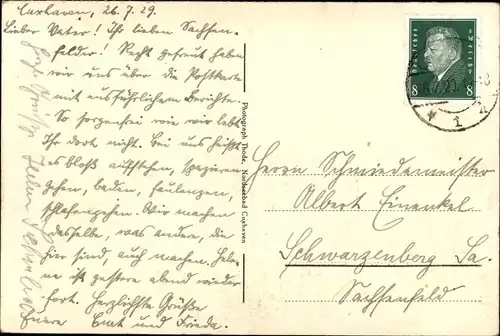 Cuxhaven, 26.7.29.
Lieber Vater! Ihr lieben Sachsen-
felder! Recht gefreut haben
wir uns über die Postkarte
mit ausführlichem Berichte.
So sorgenfrei wie wir lebt
Ihr dort nicht. Bei uns heißt
es bloß aufstehen, spazieren
gehen, baden, faulenzen,
schlafengehen. Wir machen
dasselbe, was andere, die
hier sind, auch machen. Helo-
ne ist gestern abend wieder
fort. Herzlichste Grüße
Euere Enat und Frieda.
Photograph Thode, Nordseebad Cuxhaven
Deutsches Reich
8 8
Herrn Schmiedemeister
Albert Einenkel
Schwarzenberg Sa.
Sachsenfeld